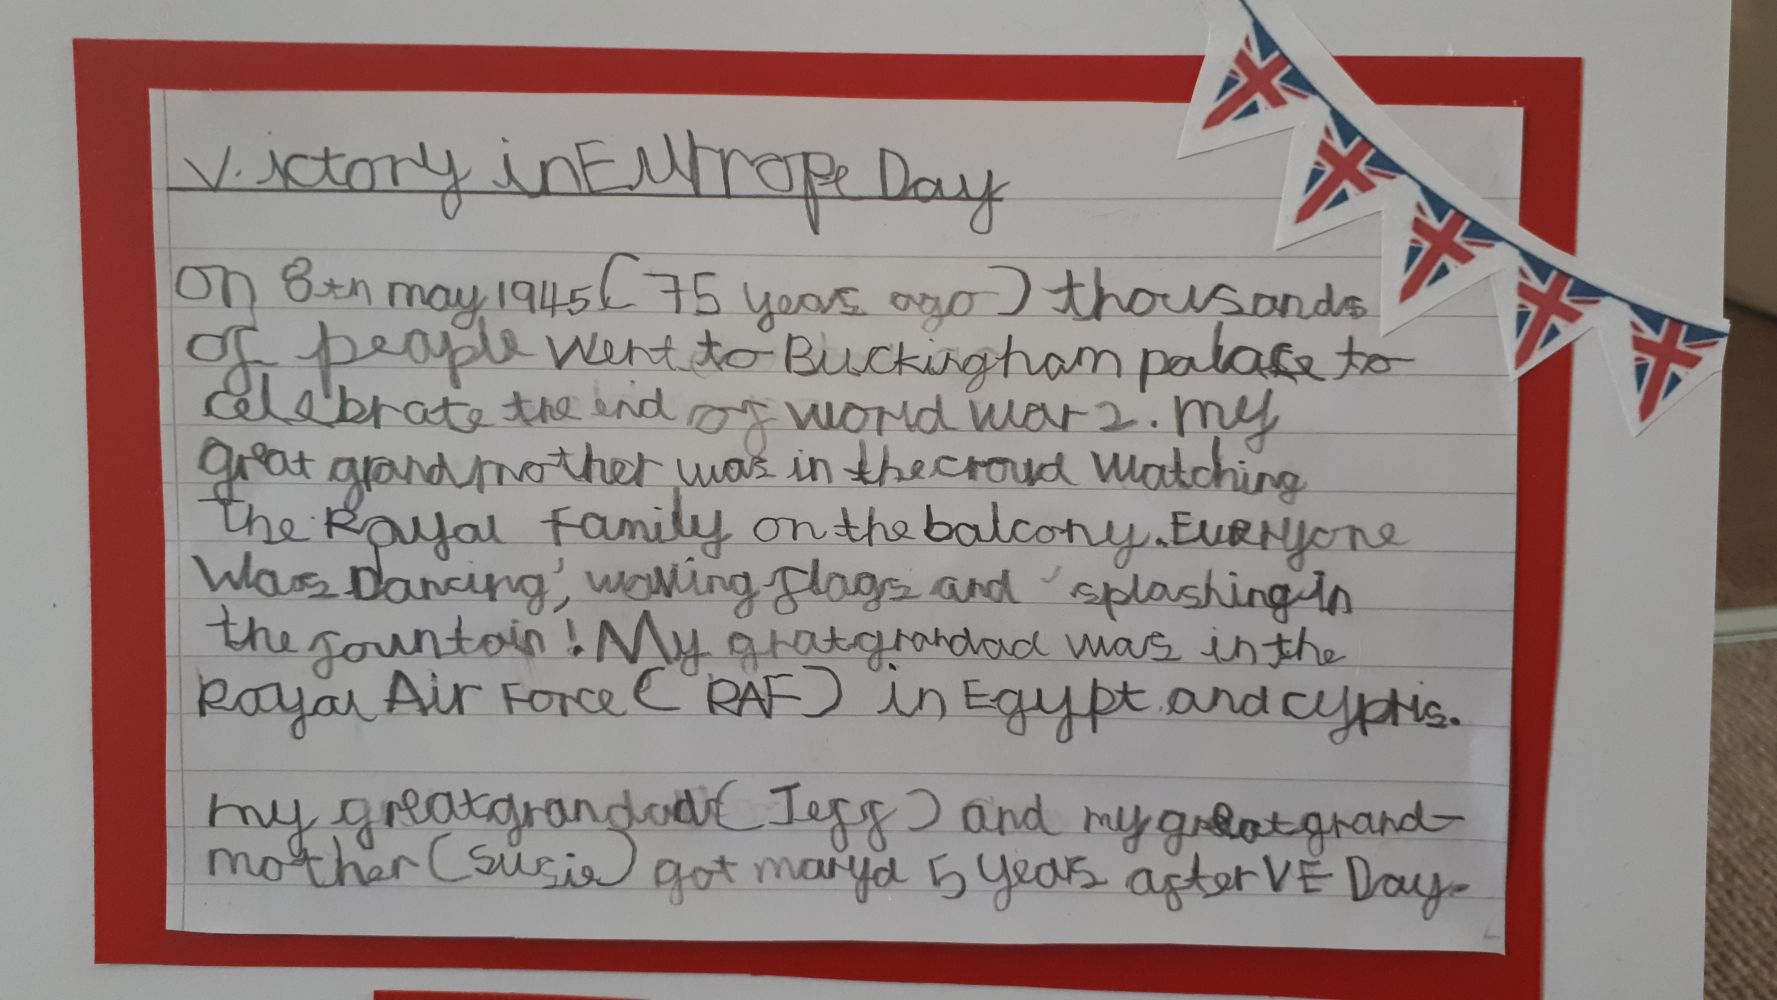 Victory in EUrrope Day
on 8th may 1945 (75 years ago) thousands
of people went to Buckingham palace to
celebrate the end of world war 2. my
great grandmother was in the croud watching
the Royal Family on the balcony. Everyone
was Dancing, waving flags and splashing in
the fountain! My gratgrandad was in the
Royal Air Force (RAF) in Egypt and cypris.
my greatgrandad (Jeff) and my great grand-
mother (Susie) got maryd 5 years after VE Day.